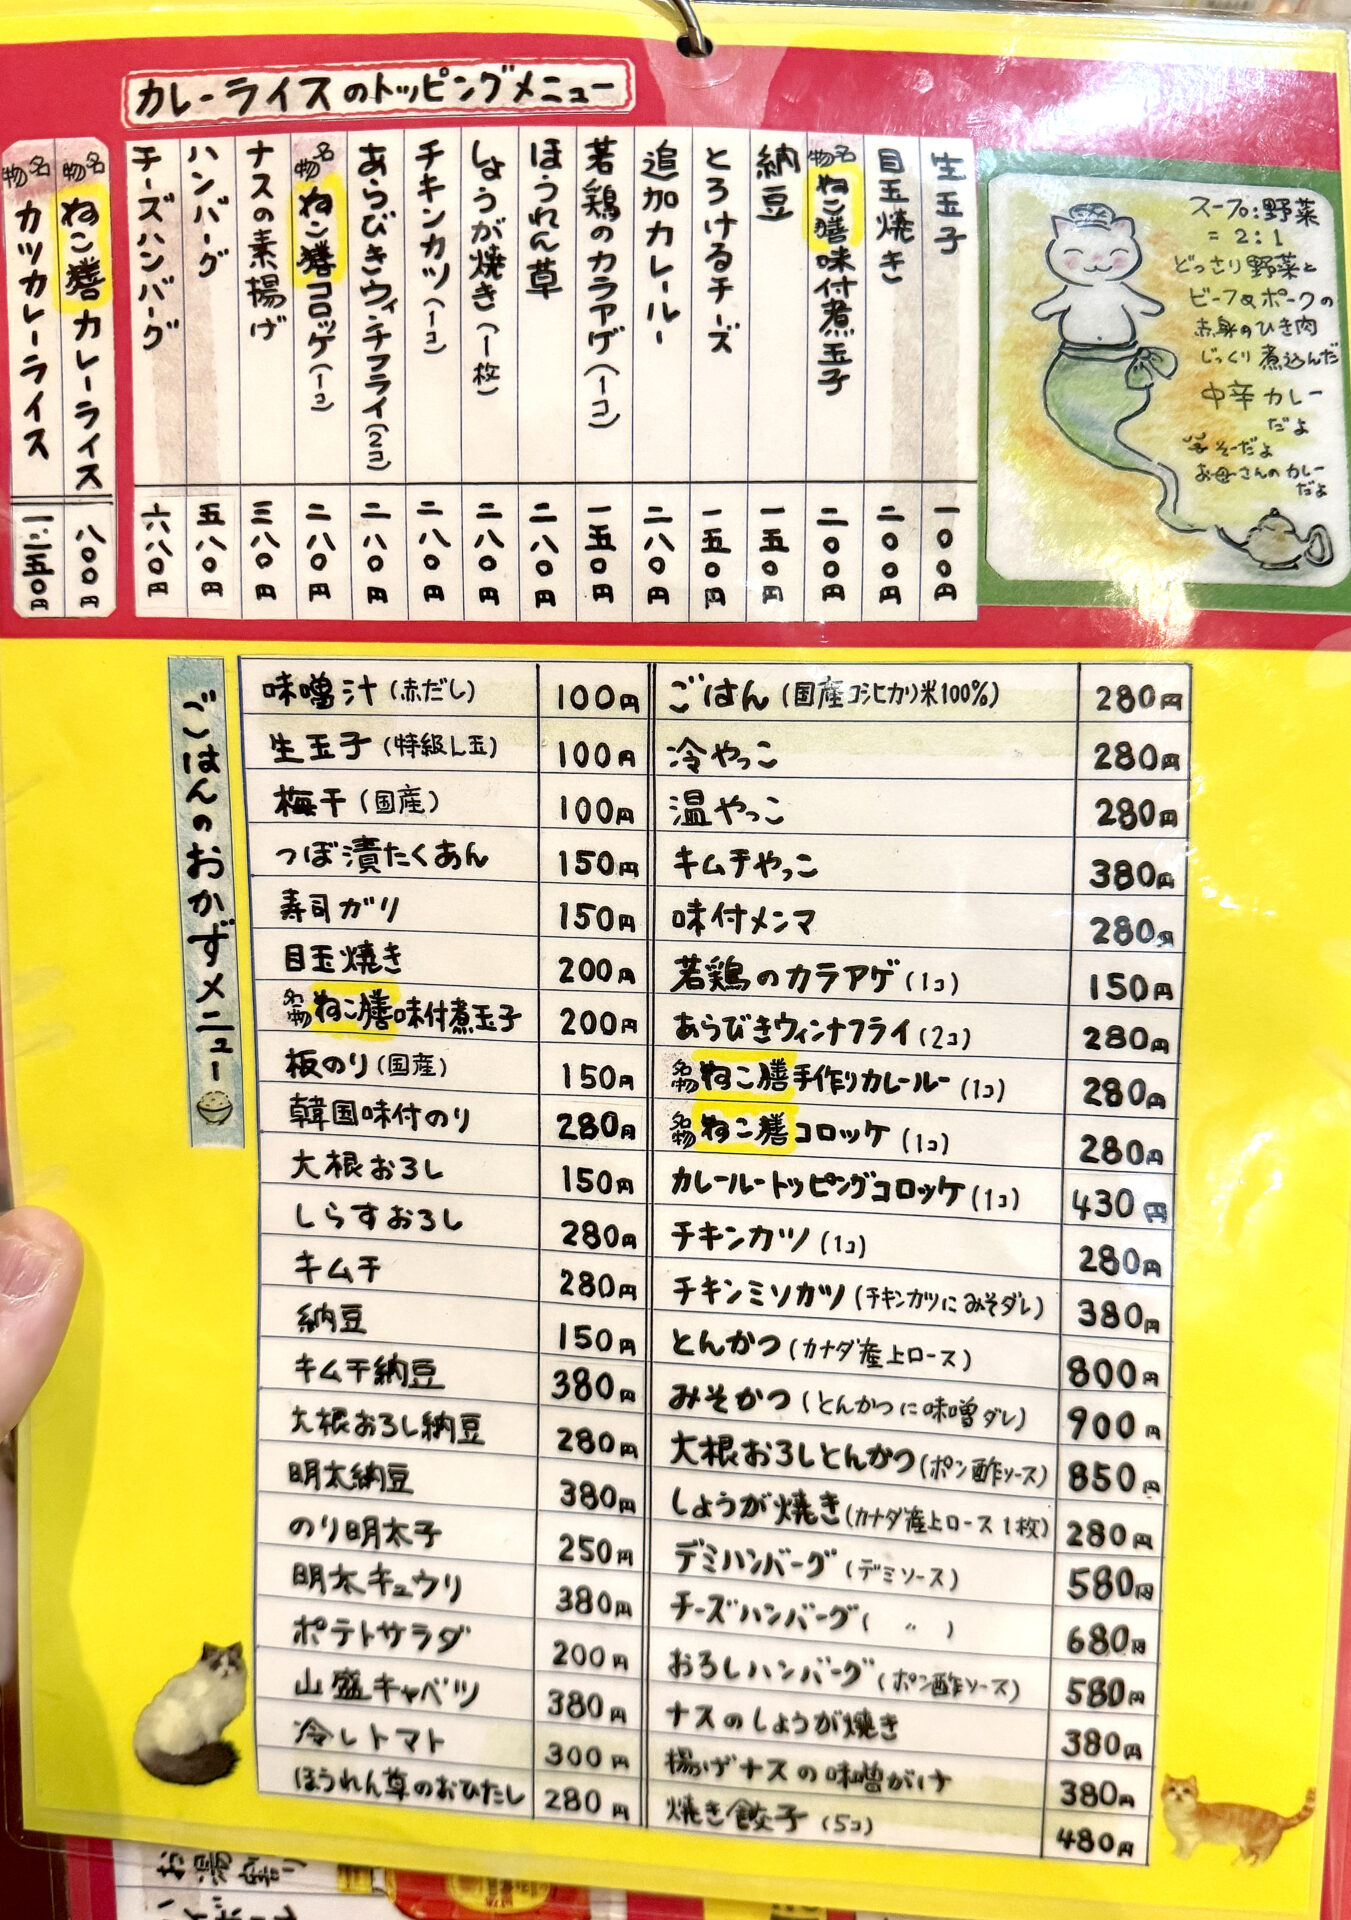 カレーライスのトッピングメニュー
生玉子 一〇〇円
目玉焼き 二〇〇円
名物 ねこ膳味付煮玉子 二〇〇円
納豆 一五〇円
とろけるチーズ 一五〇円
追加カレールー 二八〇円
若鶏のカラアゲ(一コ) 一五〇円
ほうれん草 二八〇円
しょうが焼き(一枚) 二八〇円
チキンカツ(一コ) 二八〇円
あらびきウィンナフライ(2コ) 二八〇円
名物 ねこ膳コロッケ(一コ) 二八〇円
ナスの素揚げ 三八〇円
ハンバーグ 五八〇円
チーズハンバーグ 六八〇円
名物 ねこ膳カレーライス 八〇〇円
名物 カツカレーライス 一、二五〇円
スープ:野菜
=2:1
どっさり野菜と
ビーフ&ポークの
赤身のひき肉
じっくり煮込んだ
中辛カレー
だよ
そーだよ
お母さんのカレー
だよ
ごはんのおかずメニュー
味噌汁(赤だし) 100円
生玉子(特級L玉) 100円
梅干(国産) 100円
つぼ漬たくあん 150円
寿司ガリ 150円
目玉焼き 200円
名物 ねこ膳味付煮玉子 200円
板のり(国産) 150円
韓国味付のり 280円
大根おろし 150円
しらすおろし 280円
キムチ 280円
納豆 150円
キムチ納豆 380円
大根おろし納豆 280円
明太納豆 380円
のり明太子 250円
明太キュウリ 380円
ポテトサラダ 200円
山盛キャベツ 380円
冷しトマト 300円
ほうれん草のおひたし 280円
ごはん(国産コシヒカリ米100%) 280円
冷やっこ 280円
温やっこ 280円
キムチやっこ 380円
味付メンマ 280円
若鶏のカラアゲ(1コ) 150円
あらびきウィンナフライ(2コ) 280円
名物 ねこ膳手作りカレールー(1コ) 280円
名物 ねこ膳コロッケ(1コ) 280円
カレールートッピングコロッケ(1コ) 430円
チキンカツ(1コ) 280円
チキンミソカツ(チキンカツにみそダレ) 380円
とんかつ(カナダ産上ロース) 800円
みそかつ(とんかつに味噌ダレ) 900円
大根おろしとんかつ(ポン酢ソース) 850円
しょうが焼き(カナダ産上ロース1枚) 280円
デミハンバーグ(デミソース) 580円
チーズハンバーグ(〃) 680円
おろしハンバーグ(ポン酢ソース) 580円
ナスのしょうが焼き 380円
揚げナスの味噌がけ 380円
焼き餃子(5コ) 480円